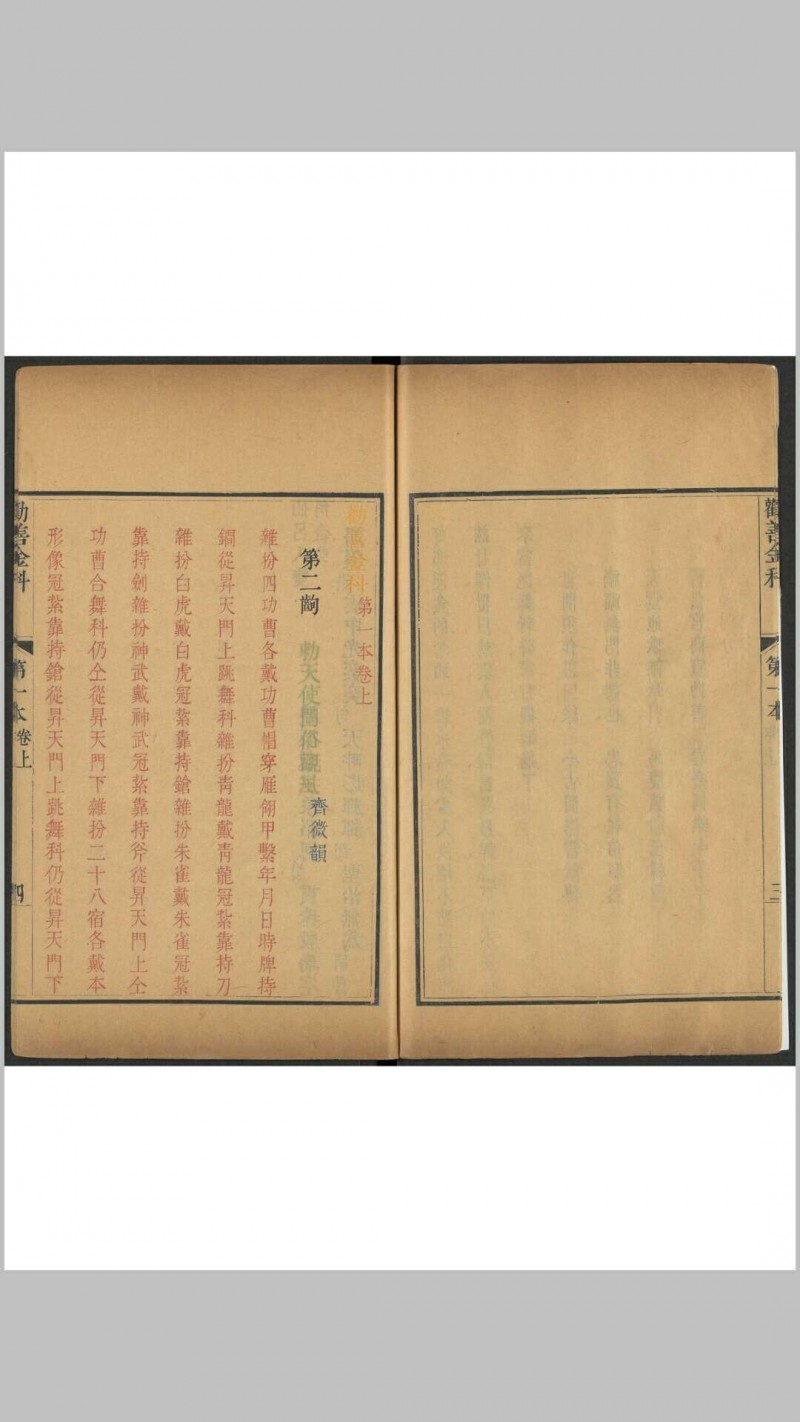 勸善金科
第一本
三
勸善金科 第一本卷上
第二齣 勅天使問俗觀風 齊微韻
雜扮四功曹各戴功曹帽穿雁翎甲繫年月日時牌持
鐧從昇天門上跳舞科雜扮青龍戴青龍冠紥靠持刀
雜扮白虎戴白虎冠紥靠持鎗雜扮朱雀戴朱雀冠紥
靠持劍雜扮神武戴神武冠紥靠持斧從昇天門上仝
功曹合舞科仍仝從昇天門下雜扮二十八宿各戴本
形像冠紥靠持鎗從昇天門上跳舞科仍從昇天門下
勸善金科
第一本卷上
四